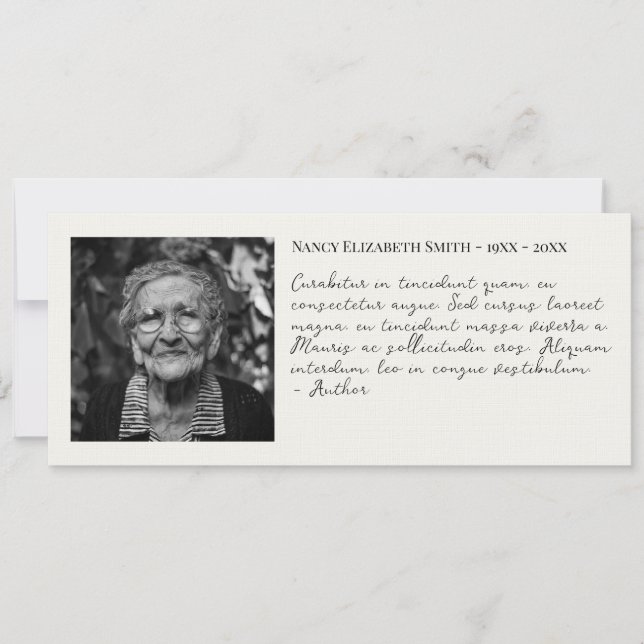 Nancy Elizabeth Smith - 19XX - 20XX
Curabitur in tincidunt quam, eu
consectetur augue. Sed cursus laoreet
magna, eu tincidunt massa viverra a.
Mauris ac sollicitudin eros. Aliquam
interdum, leo in congue vestibulum.
- Author